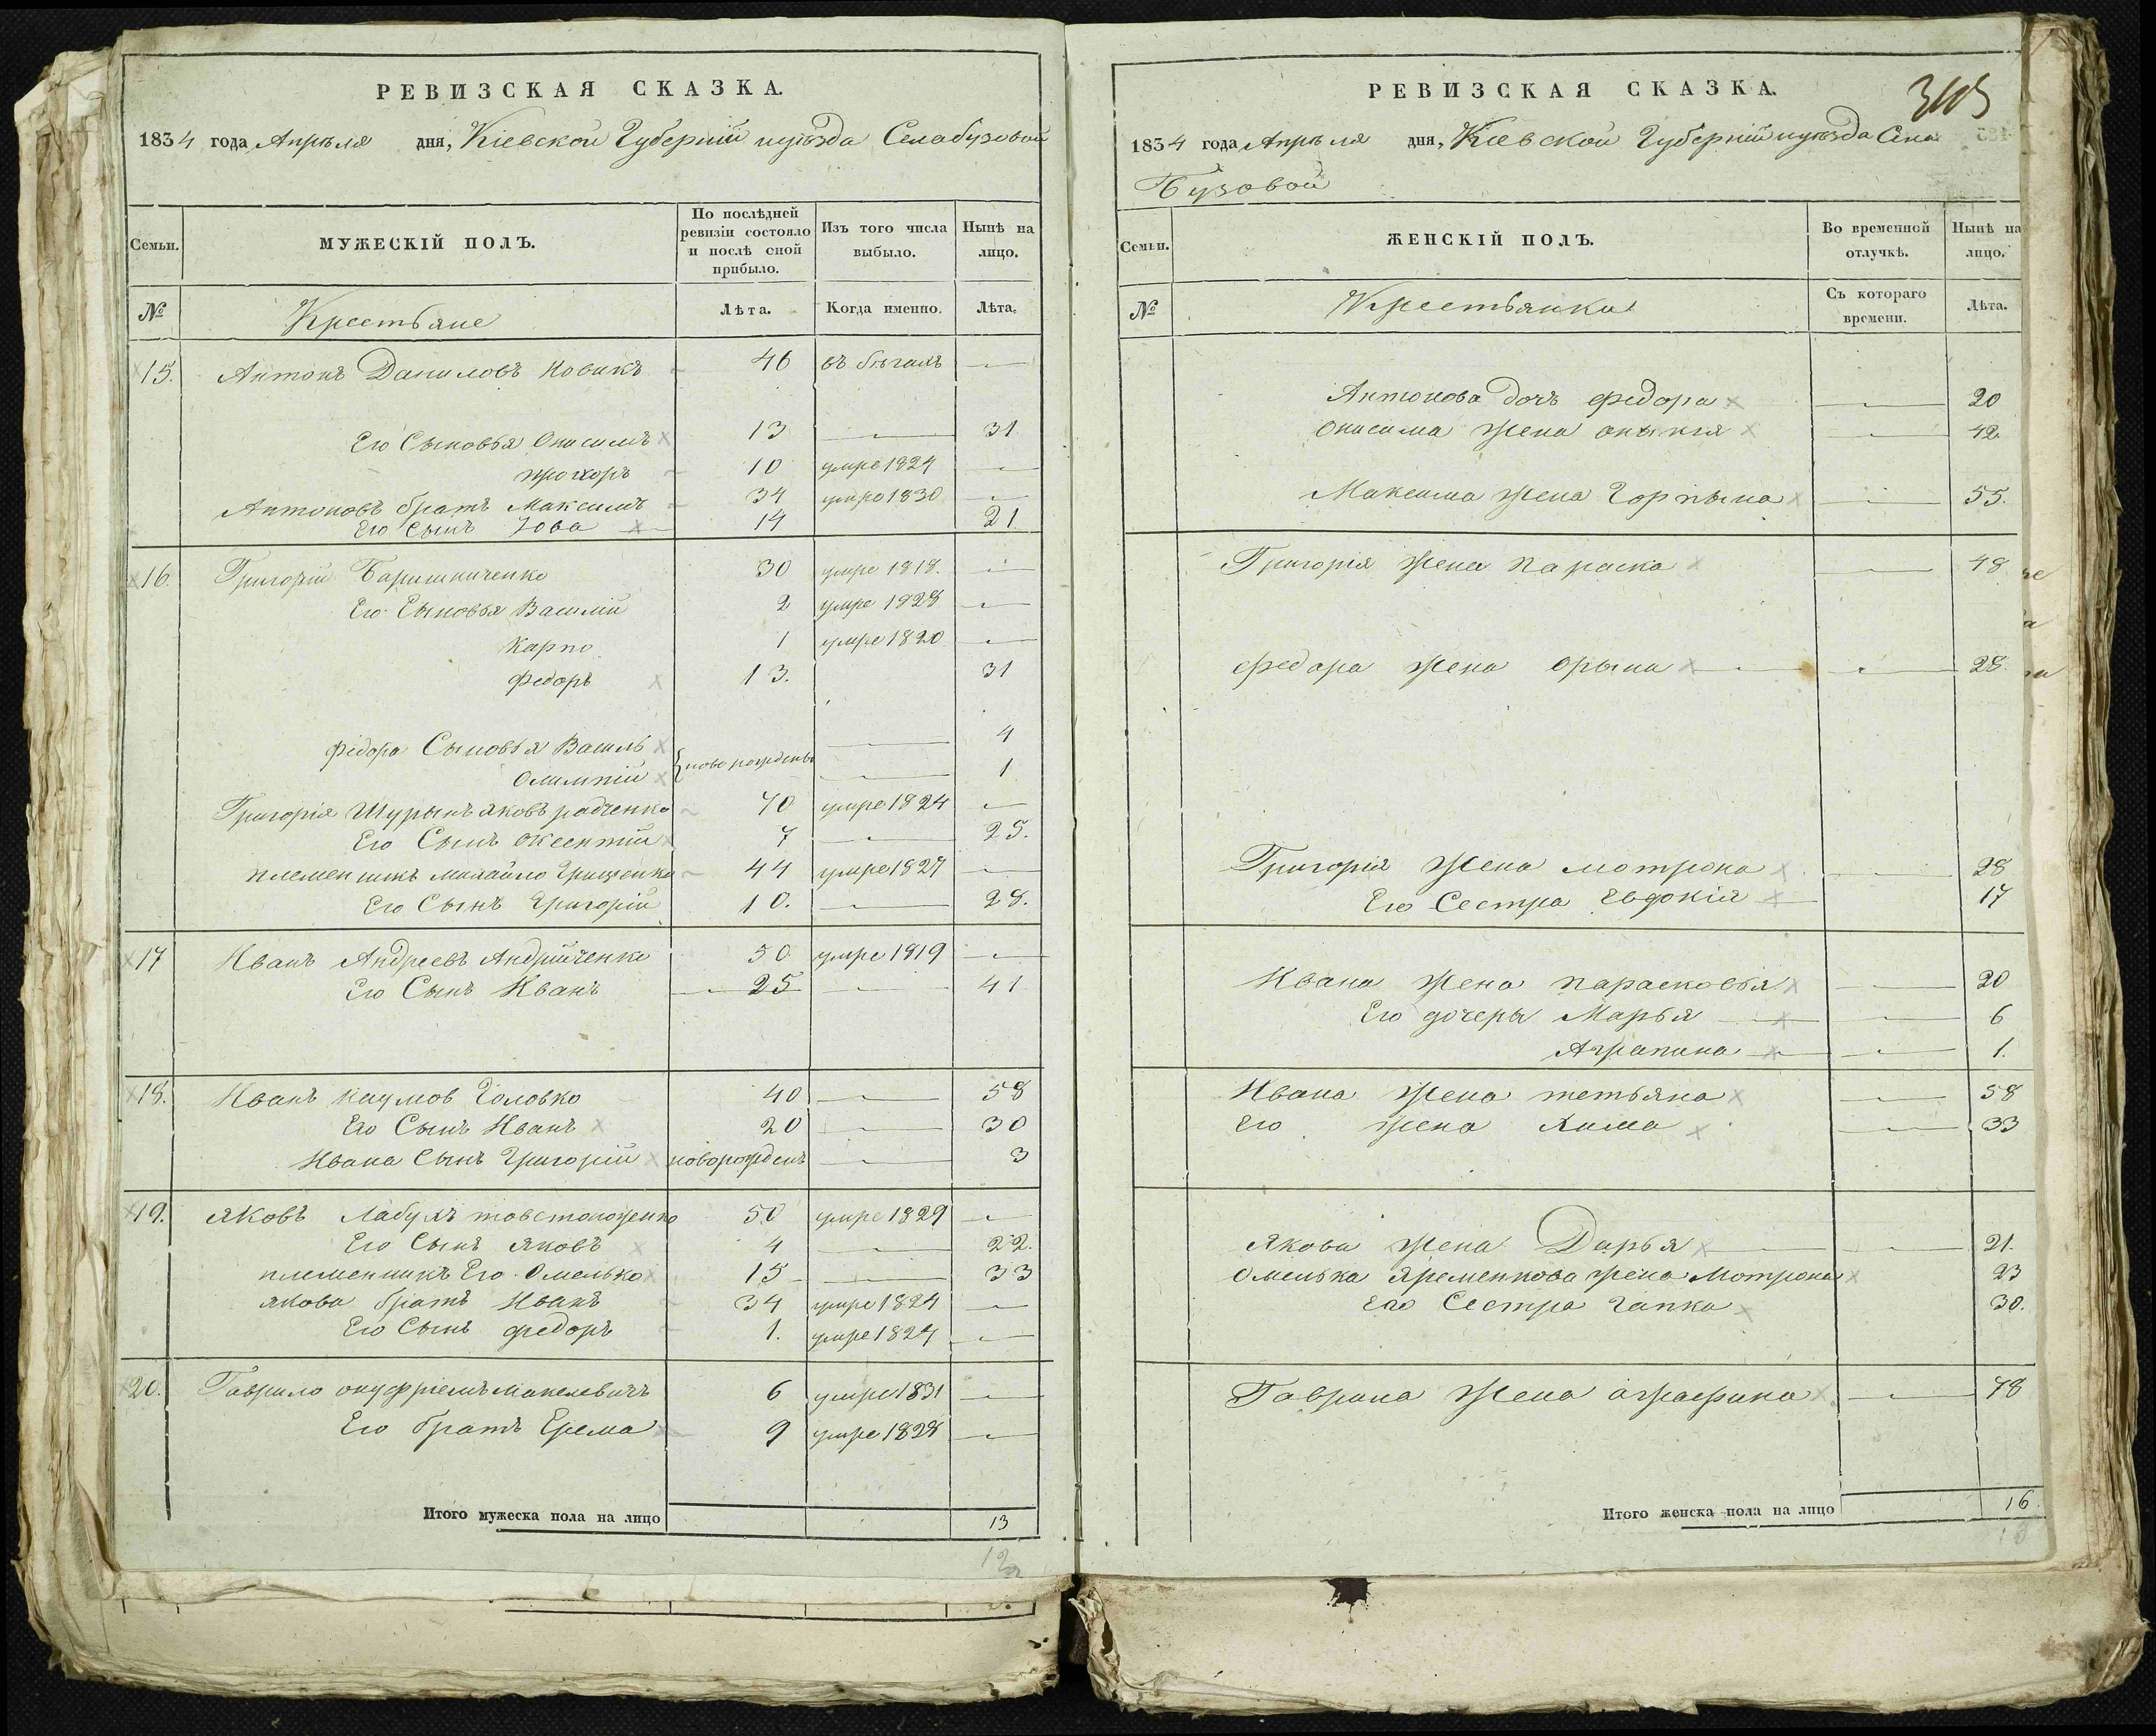 РЕВИЗСКАЯ СКАЗКА.
1834 года Апрѣля дня, Кіевской Губерніи и уѣзда Села бузовой
Семьи.
МУЖЕСКІЙ ПОЛЪ.
По послѣдней ревизіи состояло и послѣ оной прибыло.
Изъ того числа выбыло.
Нынѣ на лицо.
№
Крестьяне
Лѣта.
Когда именно.
Лѣта.
15. Антонъ Даниловъ Новикъ 46 въ бѣгахъ —
Его Сыновья Онисимъ 13 — 31
прохоръ 10 умре 1824 —
Антоновъ братъ Максимъ 34 умре 1830 —
Его Сынъ Іова 14 21
16. Григорій Баришниченко 30 умре 1818. —
Его Сыновья Василій 2 умре 1828 —
Карпо 1 умре 1820 —
Федоръ 13. 31
федора Сыновья Василь — 4
новорожденны
Олимпій — 1
Григорія Шурынъ яковъ радченко 70 умре 1824 —
Его Сынъ Оксентій 7 — 25.
племенникъ михайло Грищенко 44 умре 1827 —
Его Сынъ Григорій 10. — 28.
17 Иванъ Андреевъ Андрійченко 50 умре 1819 —
Его Сынъ Иванъ 25 — 41
18. Иванъ наумов Головко 40 — 58
Его Сынъ Иванъ 20 — 30
Ивана Сынъ Григорій новорожденъ — 3
19. яковъ Лабухъ товстоноженко 50 умре 1829 —
Его Сынъ яковъ 4 — 22.
племенникъ Его Омелько 15 — 33
якова братъ Иванъ 34 умре 1824 —
Его Сынъ федоръ 1. умре 1824 —
20. Гаврило 6 умре 1831 —
Его братъ Ерема 9 умре 1828 —
Итого мужеска пола на лицо 13
12
РЕВИЗСКАЯ СКАЗКА.
1834 года Апрѣля дня, Кіевской Губерніи и уѣзда Села
Бузовой
Семьи.
ЖЕНСКІЙ ПОЛЪ.
Во временной отлучкѣ.
Нынѣ на лицо.
№
Крестьянки
Съ котораго времени.
Лѣта.
Антонова дочь федора — 20
Онисима жена — 42
Максима жена Горпына — 55.
Григорія жена параска — 48
федора жена орына — 28.
Григорія жена мотрона — 28
Его Сестра Евдокія — 17
Ивана жена парасковья — 20
Его дочеры Марья — 6
Аграпина — 1.
Ивана жена тетьяна — 58
Его жена Хима — 33
Якова жена Дарья — 21.
Омелька Яременкова жена Мотрона 23
Его Сестра гапка 30.
Гаврила жена аграфина — 48
Итого женска пола на лицо 16